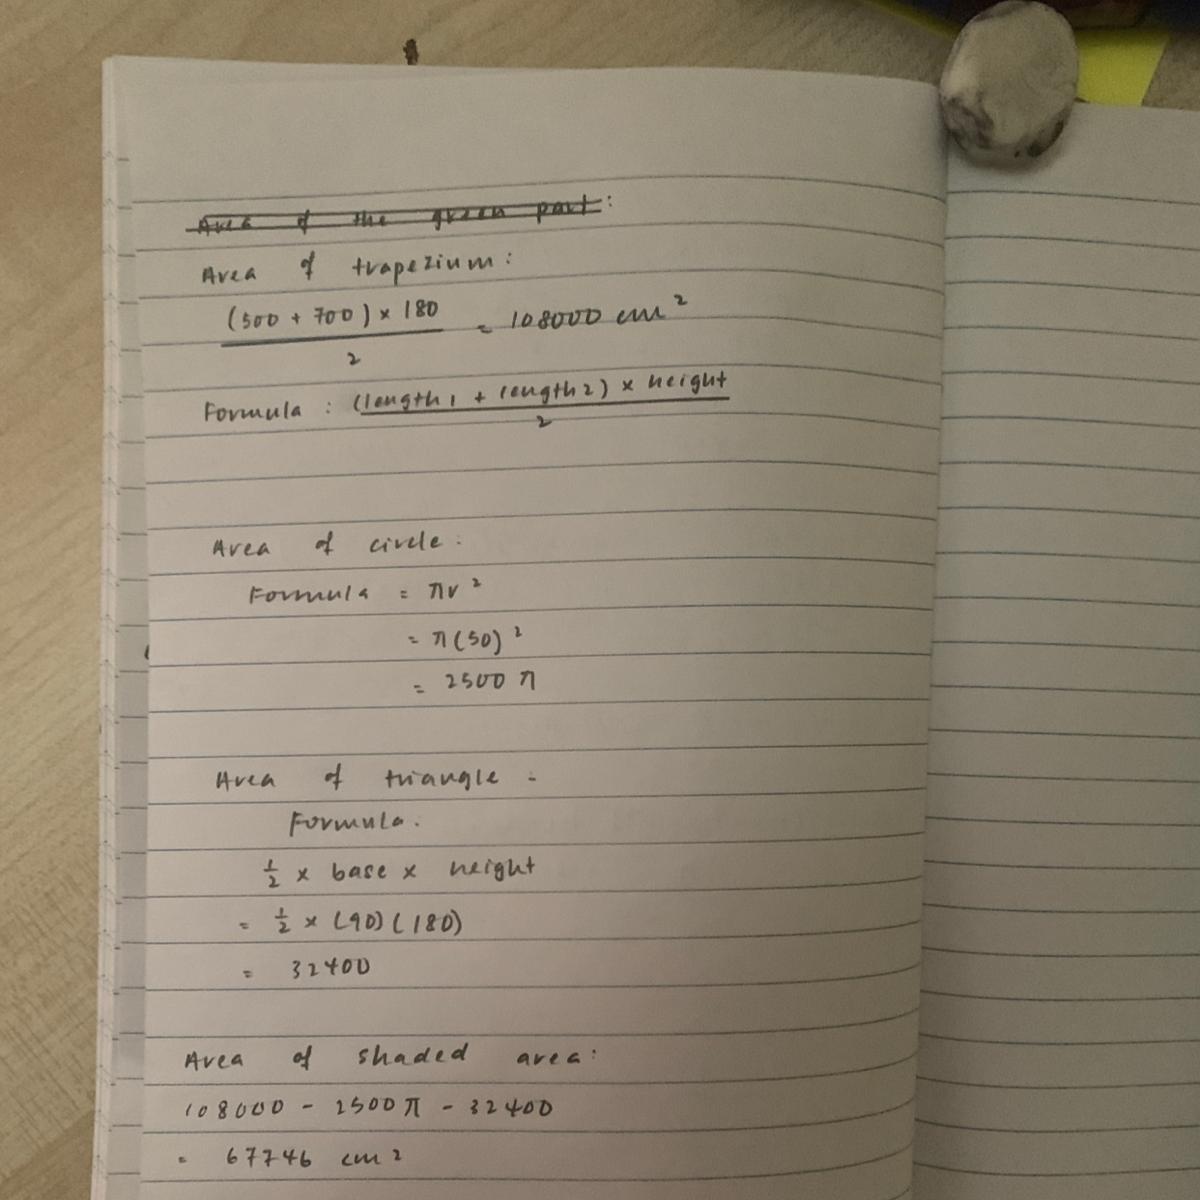 Area of the green part:
Area of trapezium:
(500 + 700) × 180
2
= 108000 cm²
Formula : (length 1 + length 2) × height
2
Area of circle:
Formula = πr²
= π(50)²
= 2500 π
Area of triangle:
Formula:
½ × base × height
= ½ × (90)(180)
= 32400
Area of shaded area:
108000 - 2500π - 32400
= 67746 cm²